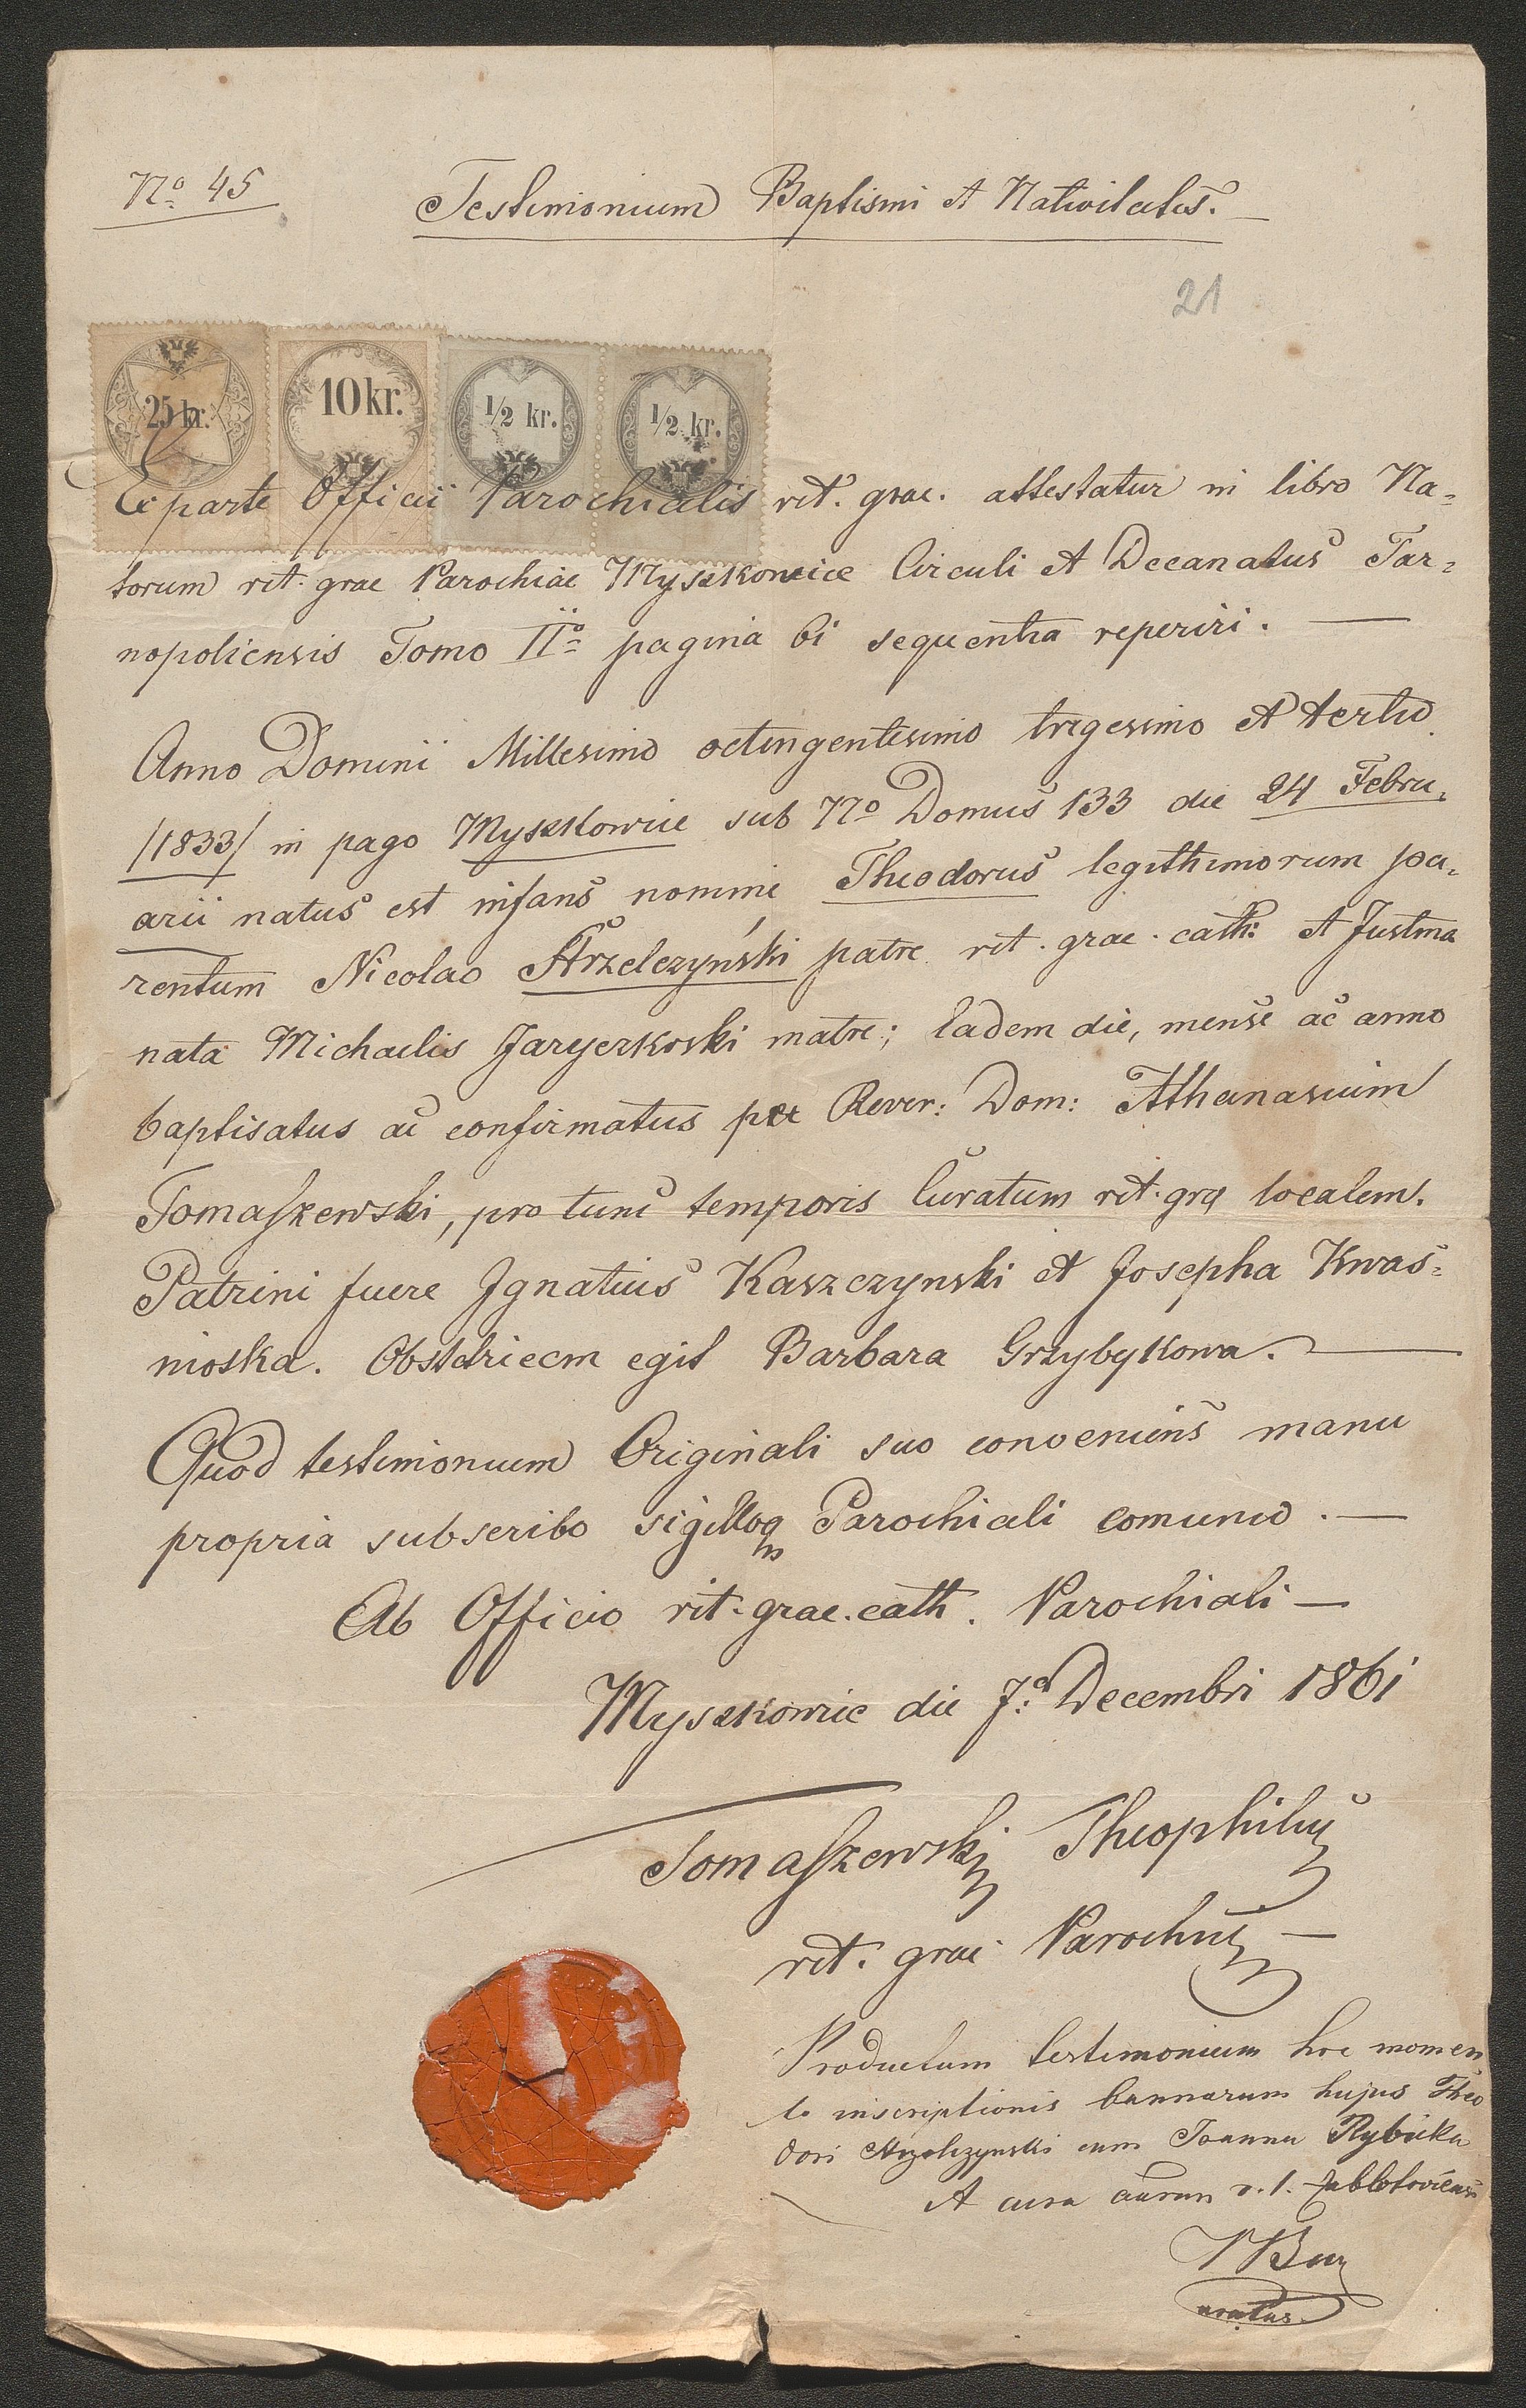 No 45
Testimonium Baptismi et Nativitatis.
21
25 kr.
10 kr.
1/2 kr.
1/2 kr.
Ex parte Officii Parochialis rit. grae. attestatur in libro Na=
torum rit. grae Parochiae Myszkowice Circuli et Decanatus Tar=
nopoliensis Tomo IIo pagina 61 sequentia reperiri.
Anno Domini Millesimo octingentesimo trigesimo et tertio
/1833/ in pago Myszkowice sub No Domus 133 die 24 Febru=
arii natus est infans nomine Theodorus legithimorum pa=
rentum Nicolao Strzelczyński patre rit. grae. cath: et Justina
nata Michaelis Jaryczkoski matre; Eadem die, mense ac anno
baptisatus ac confirmatus per Rever: Dom: Athanasium
Tomaszewski, pro tunc temporis Curatum rit. grae localem.
Patrini fuere Ignatius Kaszczynski et Josepha Kwaś=
nioska. Obstetricem egit Barbara Grzybykowa.
Quod testimonium Originali suo conveniens manu
propria subscribo sigilloq Parochiali comunio.
Ab Officio rit. grae. cath. Parochiali
Myszkowie die 7. Decembri 1861
Tomaszewski Theophilus
rit. grae Parochus
Productum testimonium hoc momen
to inscriptionis bannorum hujus Theo
dori Strzelczynski cum Joanna Rybicka
A cura r. l. Zablotoviensi